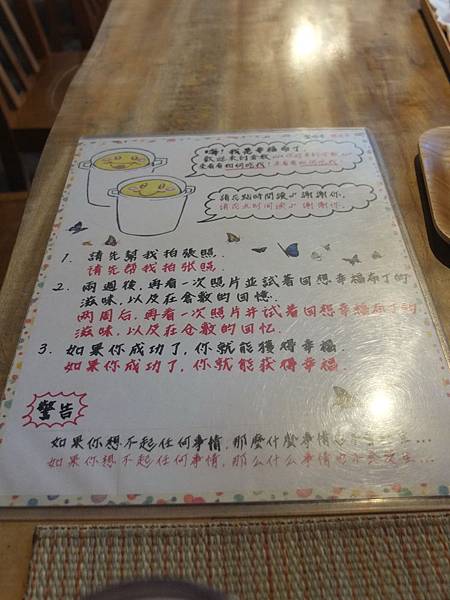 嗨! 我是幸福布丁
歡迎來到倉敷
請花點時間讀 謝謝你.
请花点时间读 谢谢你.
1. 請先幫我拍張照.
请先帮我拍张照.
2. 兩週後,再看一次照片並試著回想幸福布丁的
滋味,以及在倉敷的回憶.
两周后,再看一次照片并试着回想幸福布丁的
滋味,以及在仓敷的回忆.
3. 如果你成功了,你就能獲得幸福.
如果你成功了,你就能获得幸福
警告
如果你想不起任何事情,那麼什麼事情也不會發生...
如果你想不起任何事情,那么什么事情也不会发生...